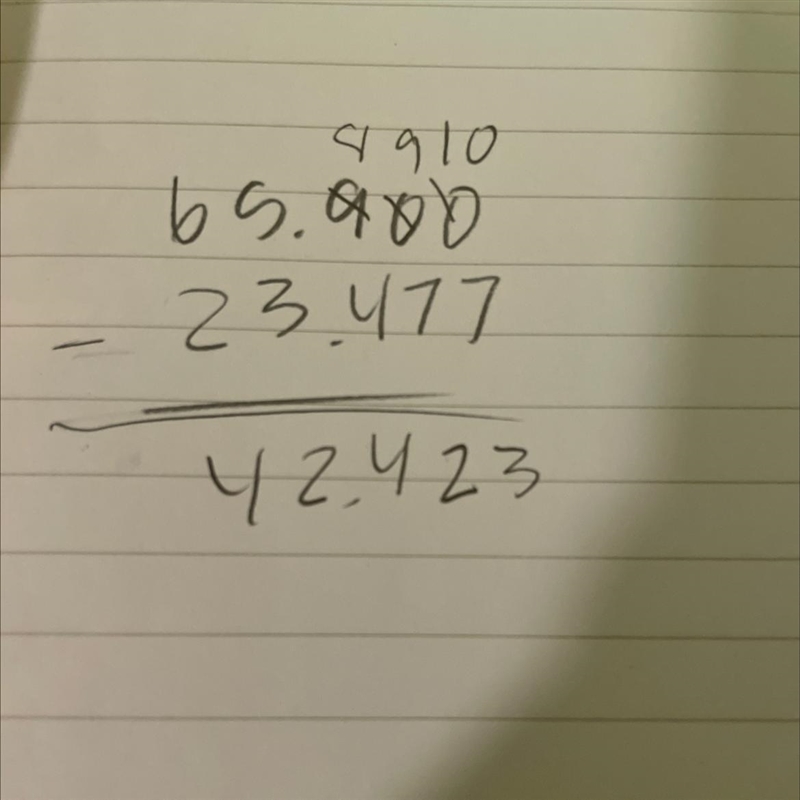 8 9 10
65.900
- 23.477
42.423